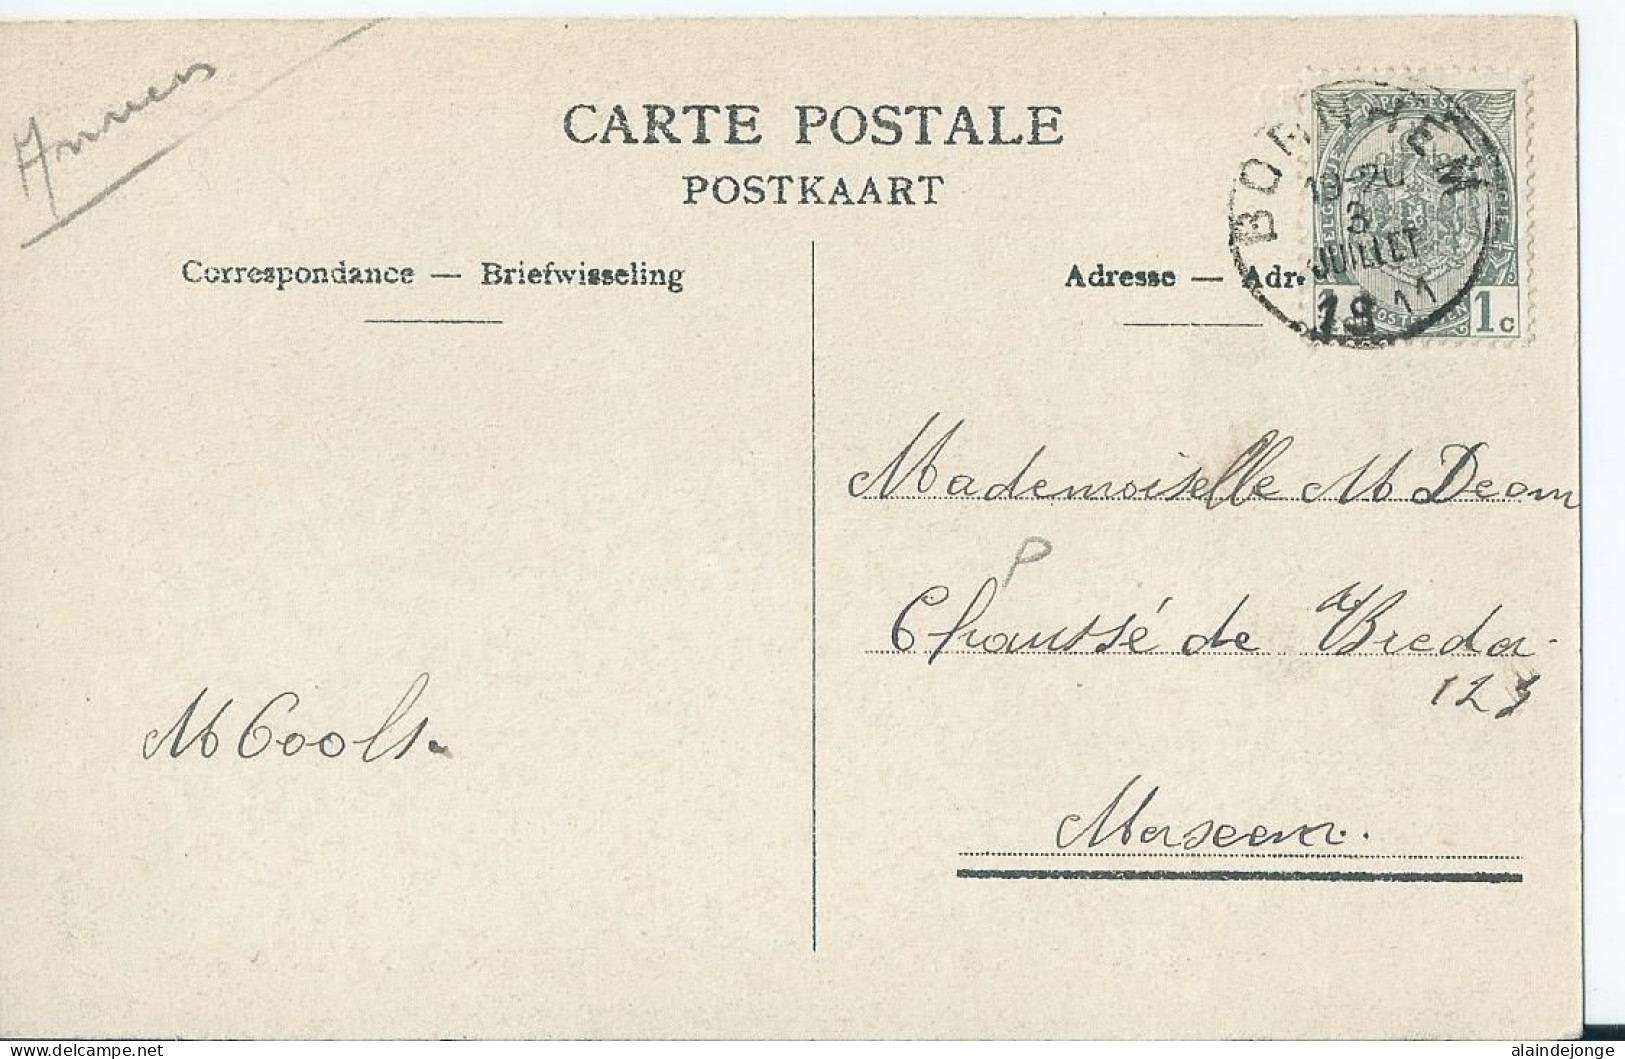 CARTE POSTALE
POSTKAART
Correspondance — Briefwisseling
Adresse — Adr.
BORNHEM
10-20
3
JUILLET
19 11
1c
Mademoiselle M Deom
P
Chaussé de Breda
123
M Cools.
Merxem.
www.delcampe.net
alaindejonge